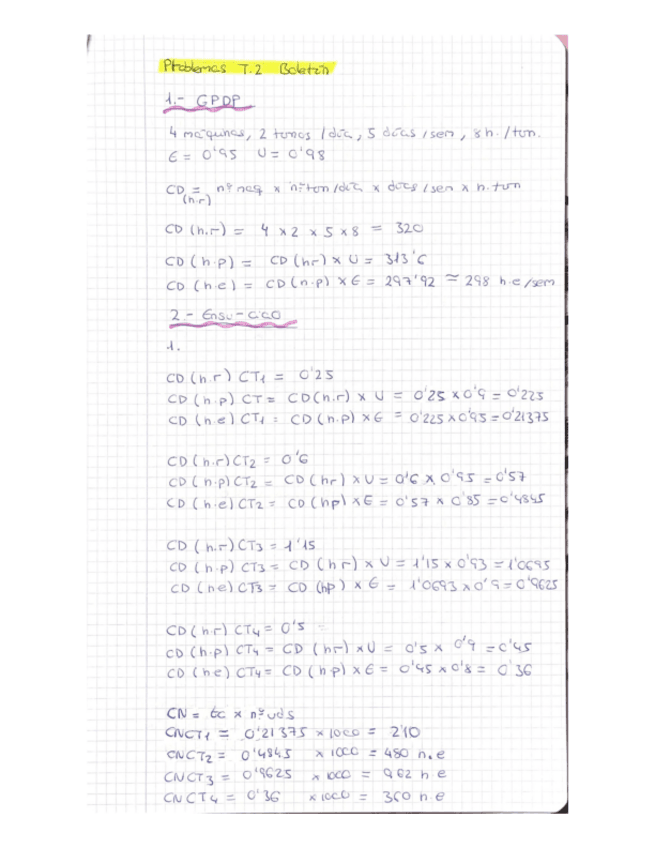 Problemas T.2 Boletín
1.- GPDP
4 máquinas, 2 turnos /día, 5 días /sem, 8h. /turn.
E = 0'95 U = 0'98
CD = nº maq x nºturn/día x días /sem x h. turn
(h.r)
CD (h.r) = 4 x 2 x 5 x 8 = 320
CD (h.p) = CD (hr) x U = 313'6
CD (h e) = CD (h.p) x E = 297'92 ≃ 298 h.e/sem
2.- Ensu-ciao
1.
CD (h.r) CT1 = 0'25
CD (h.p) CT = CD(h.r) x U = 0'25 x 0'9 = 0'225
CD (h e) CT1 = CD (h.p) x E = 0'225 x 0'95 = 0'21375
CD (h.r) CT2 = 0'6
CD (h.p) CT2 = CD (hr) x U = 0'6 x 0'95 = 0'57
CD (h.e) CT2 = CD (hp) x E = 0'57 x 0'85 = 0'4845
CD (h.r) CT3 = 1'15
CD (h.p) CT3 = CD (h r) x U = 1'15 x 0'93 = 1'0695
CD (h e) CT3 = CD (hp) x E = 1'0693 x 0'9 = 0'9625
CD (h.r) CT4 = 0'5
CD (h.p) CT4 = CD (hr) x U = 0'5 x 0'9 = 0'45
CD (h e) CT4 = CD (h p) x E = 0'45 x 0'8 = 0'36
CN = tc x nº uds
CNCT1 = 0'21375 x 1000 = 210
CNCT2 = 0'4845 x 1000 = 480 h.e
CNCT3 = 0'9625 x 1000 = 962 h.e
CNCT4 = 0'36 x 1000 = 360 h.e